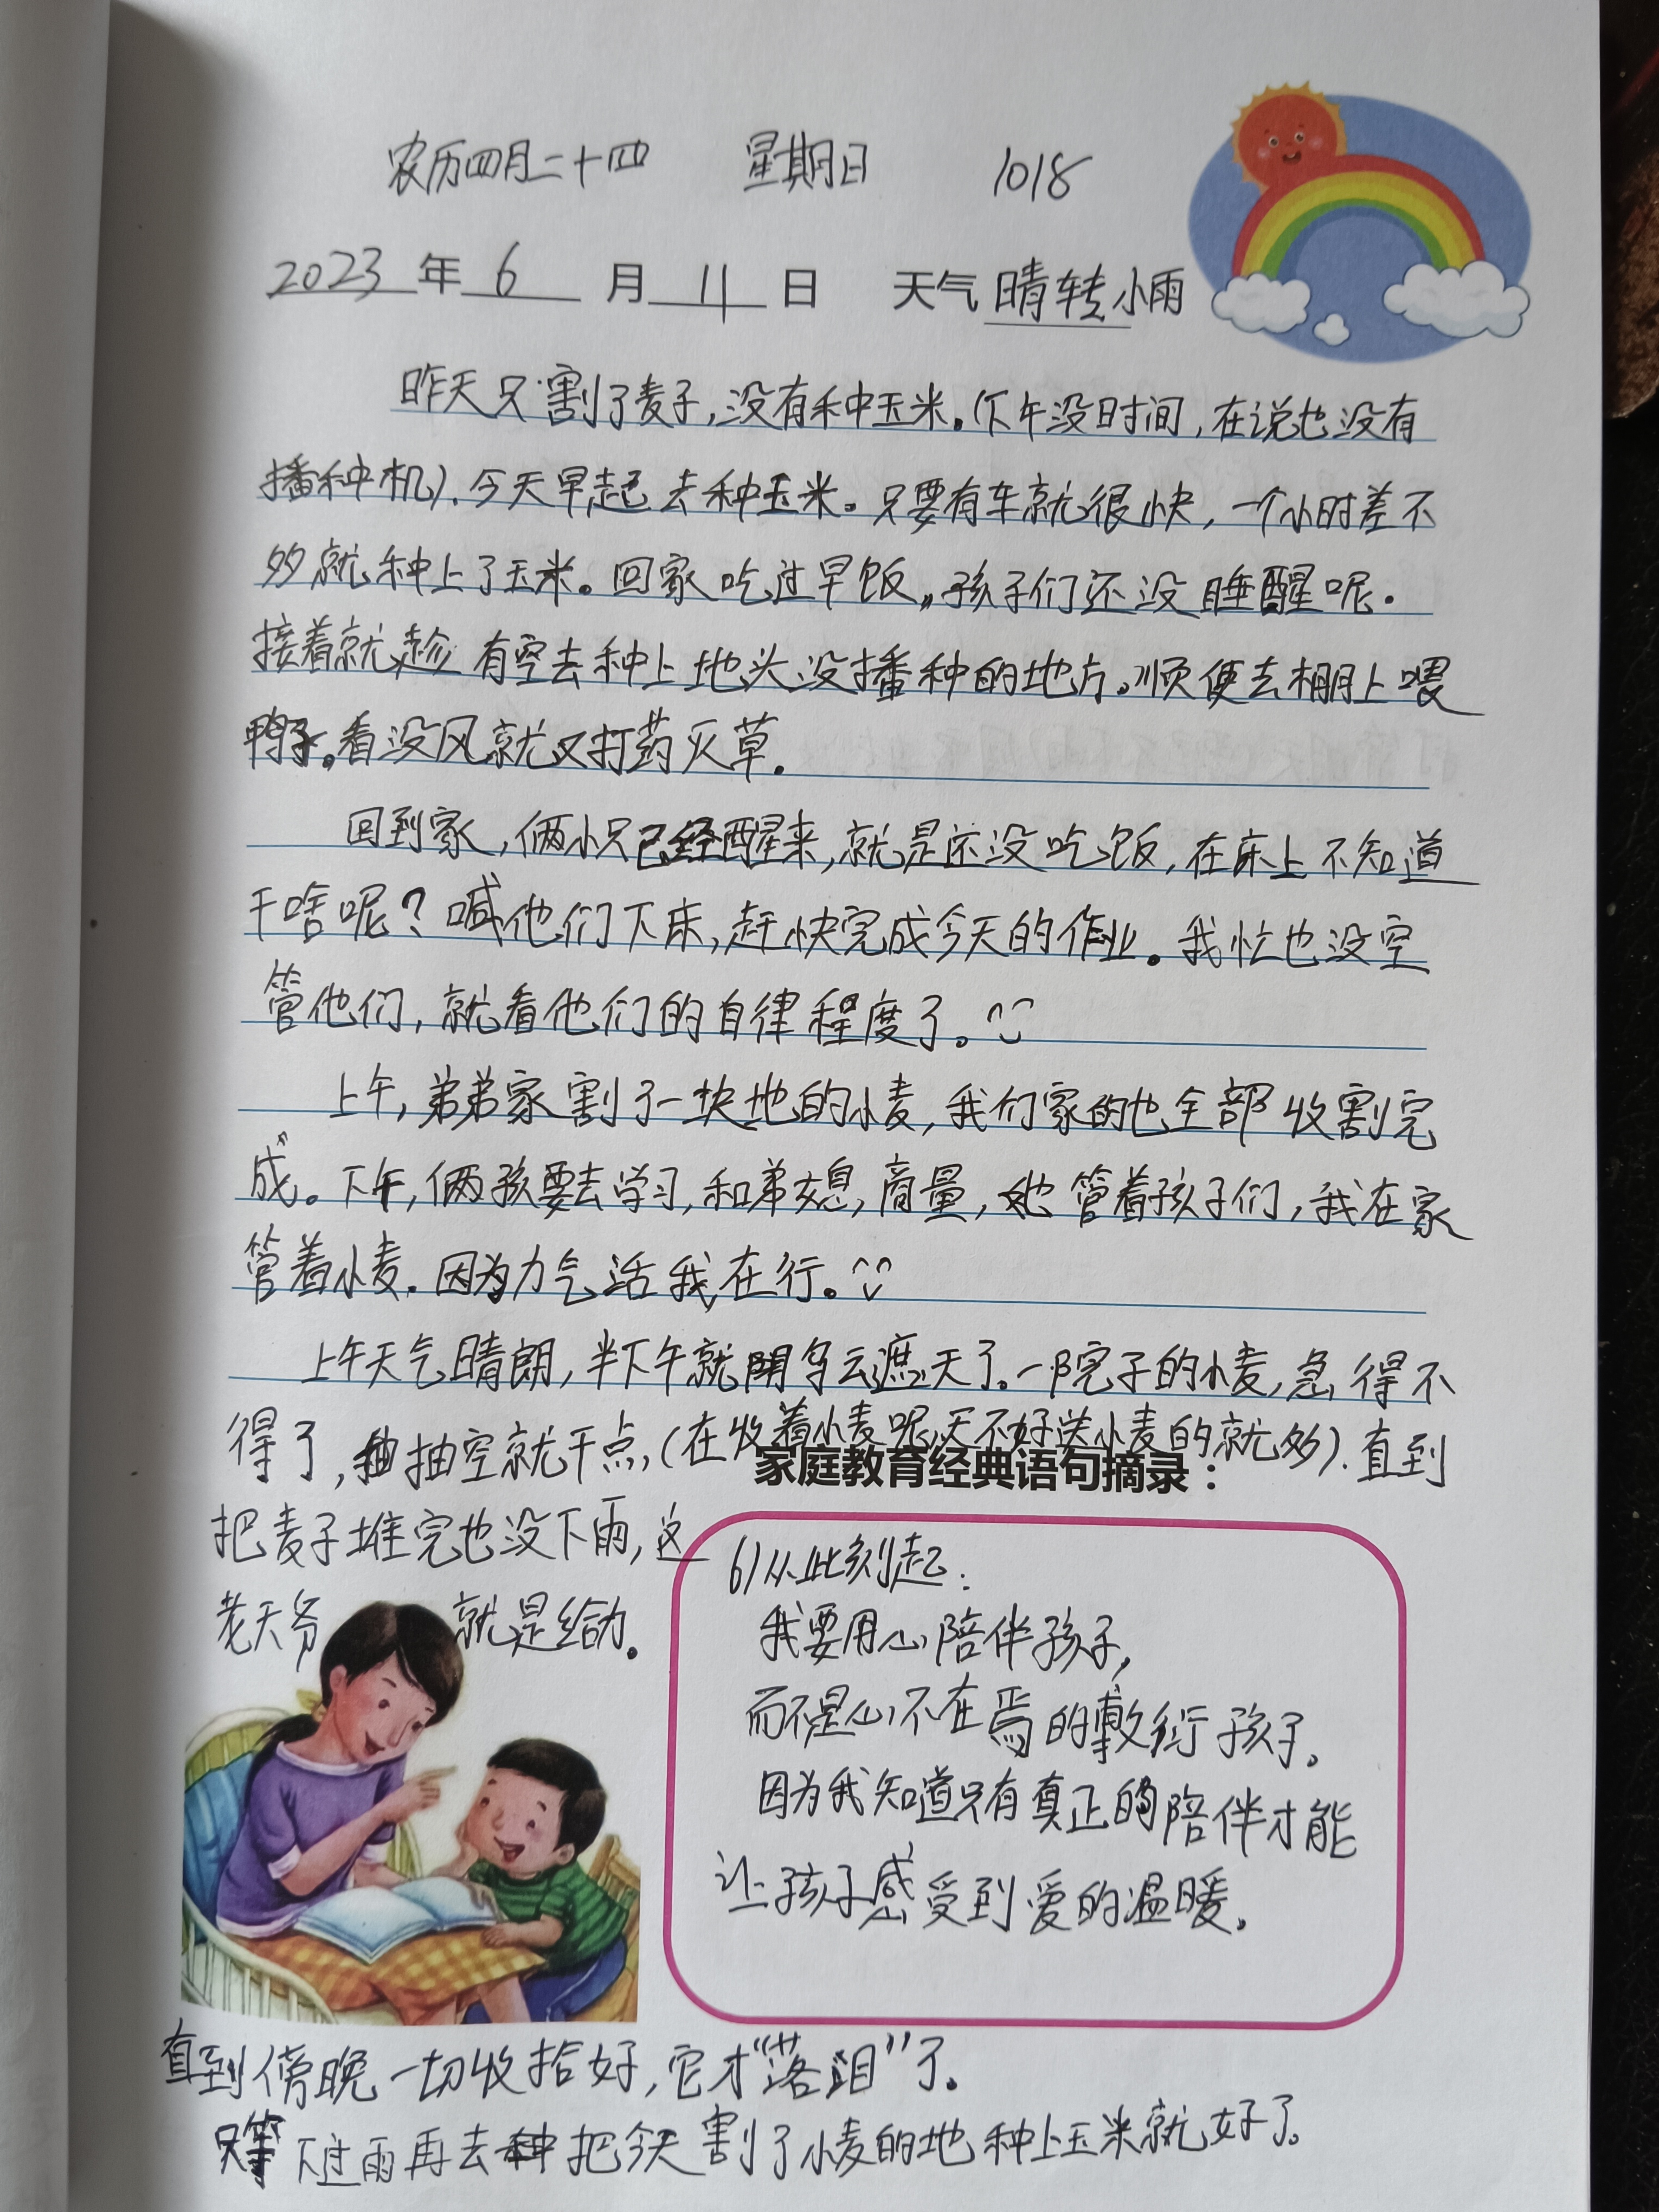 农历四月二十四 星期日 1018
2023年6月11日 天气晴转小雨
昨天只割了麦子,没有种玉米。(下午没时间,在说也没有
播种机).今天早起去种玉米。只要有车就很快,一个小时差不
多就种上了玉米。回家吃过早饭,孩子们还没睡醒呢.
接着就趁有空去种上地头没播种的地方。顺便去棚上喂
鸭子。看没风就又打药灭草.
回到家,俩小只已经醒来,就是还没吃饭,在床上不知道
干啥呢?喊他们下床,赶快完成今天的作业。我忙也没空
管他们,就看他们的自律程度了。
上午,弟弟家割了一块地的小麦,我们家的也全部收割完
成。下午,俩孩要去学习,和弟媳,商量,她管着孩子们,我在家
管着小麦.因为力气活我在行。
上午天气晴朗,半下午就乌云遮天了。一院子的小麦,急得不
得了,抽空就干点,(在收着小麦呢,天不好送小麦的就多).直到
家庭教育经典语句摘录:
把麦子堆完也没下雨,这
老天爷就是给力。
61从此刻起:
我要用心陪伴孩子,
而不是心不在焉的敷衍孩子。
因为我知道只有真正的陪伴才能
让孩子感受到爱的温暖。
直到傍晚一切收拾好,它才“落泪”了。
只等下过雨再去把今天割了小麦的地种上玉米就好了。